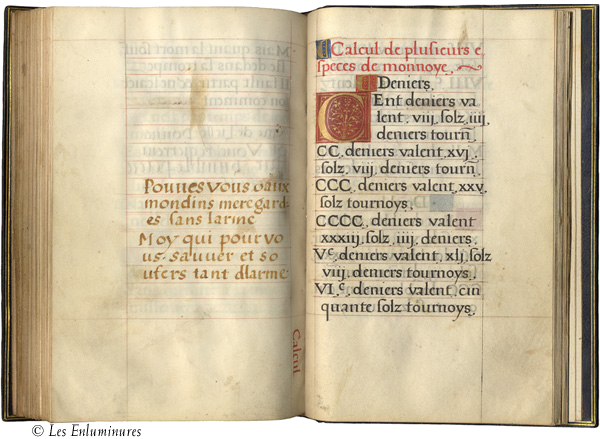 Pouves vous oaux
mondins meregard
es sans larme
Moy qui pour vo
us sauuer et so
ufers tant dlarme
Calcul
Calcul de plusieurs e
speces de monnoye.
Deniers.
Ent deniers va
lent. viij. solz. iiij.
deniers tourñ.
CC. deniers valent. xvj.
solz. viij. deniers tourñ.
CCC. deniers valent. xxv.
solz tournoys.
CCCC. deniers valent
xxxiij. solz. iiij. deniers.
Vᶜ. deniers valent. xlj. solz
viij. deniers tournoys.
VIᶜ. deniers valent. cin
quante solz tournoys.
© Les Enluminures